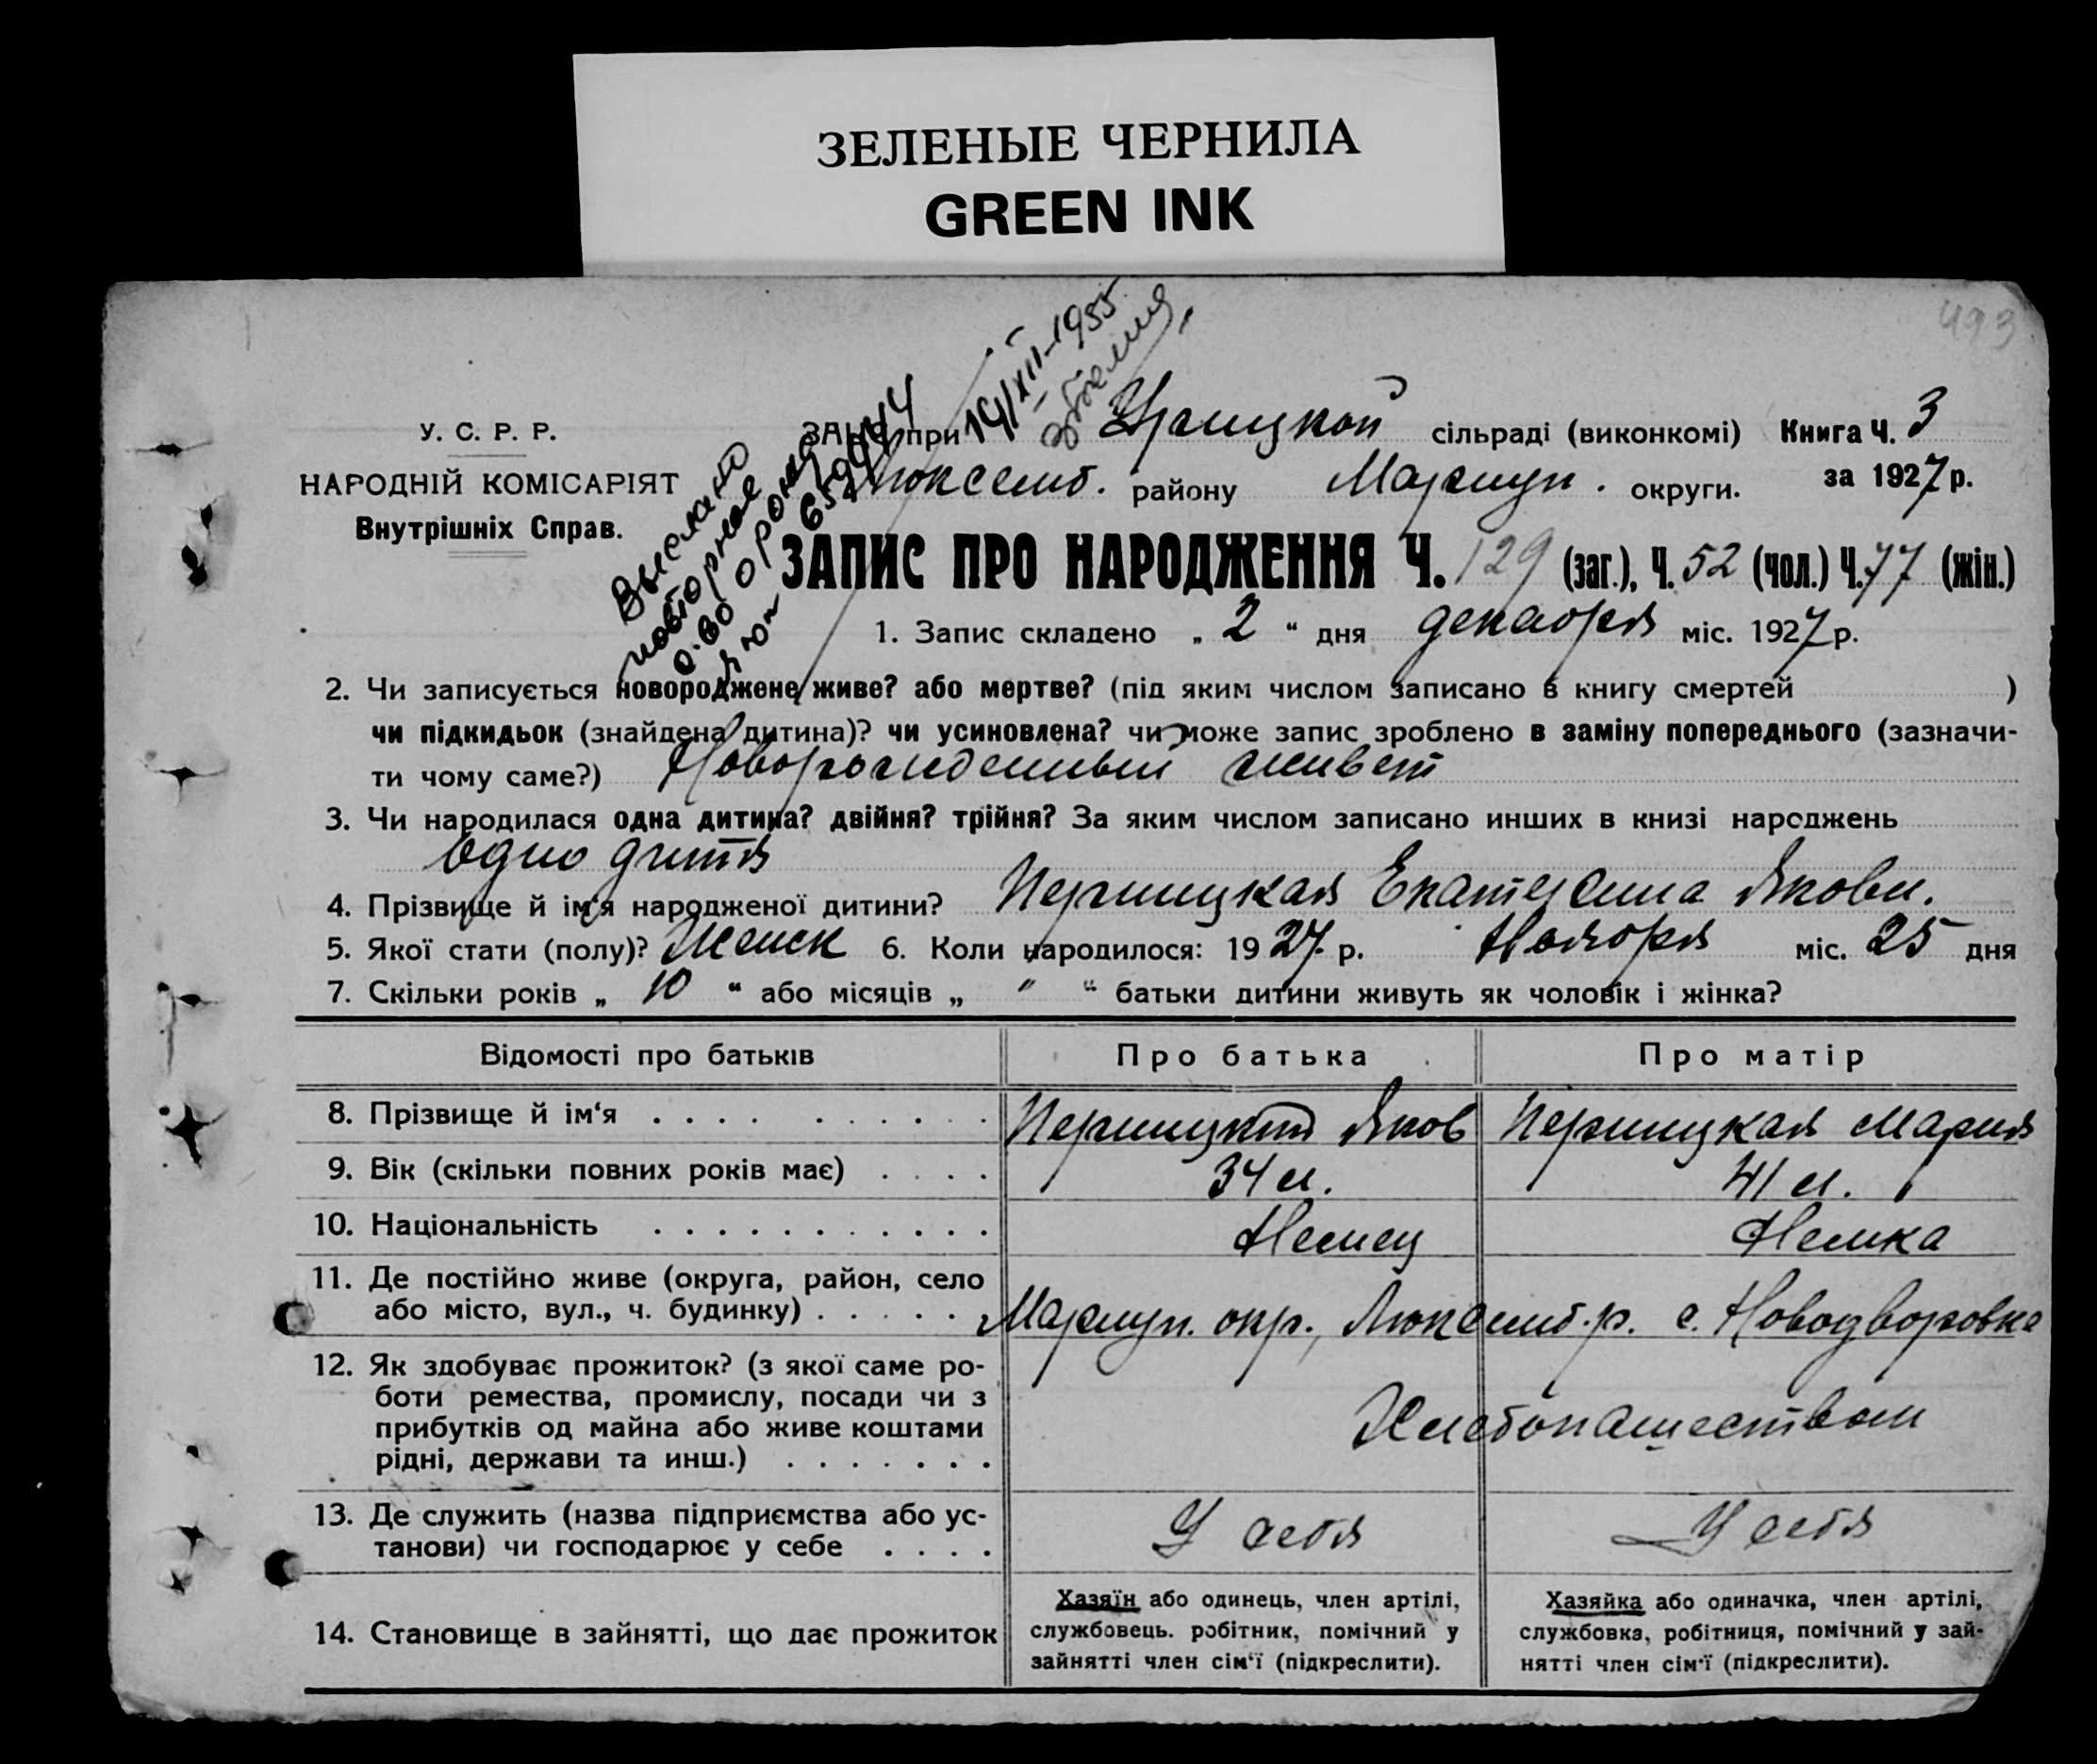 ЗЕЛЕНЫЕ ЧЕРНИЛА
GREEN INK
493
14/XII-1955
Выслано
повторное
У. С. Р. Р.
НАРОДНІЙ КОМІСАРІЯТ
Внутрішніх Справ.
ЗАГС при Урицкой сільраді (виконкомі) Книга Ч. 3
Люксемб. району Мариуп. округи. за 1927 р.
ЗАПИС ПРО НАРОДЖЕННЯ Ч. 129 (заг.), Ч. 52 (чол.) Ч. 77 (жін.)
1. Запис складено „ 2 “ дня декабря міс. 1927 р.
2. Чи записується новороджене живе? або мертве? (під яким числом записано в книгу смертей )
чи підкидьок (знайдена дитина)? чи усиновлена? чи може запис зроблено в заміну попереднього (зазначи-
ти чому саме?) Новорожденный живет
3. Чи народилася одна дитина? двійня? трійня? За яким числом записано инших в книзі народжень
Одно дитя
4. Прізвище й ім‘я народженої дитини? Екатерина Яковл.
5. Якої стати (полу)? Женск 6. Коли народилося: 1927 р. Ноября міс. 25 дня
7. Скільки років „ 10 “ або місяців „ " “ батьки дитини живуть як чоловік і жінка?
Відомості про батьків Про батька Про матір
8. Прізвище й ім‘я . . . . . . . . . . Яков Мария
9. Вік (скільки повних років має) . . . . 34 л. 41 л.
10. Національність . . . . . . . . . . . . Немец Немка
11. Де постійно живе (округа, район, село
або місто, вул., ч. будинку) . . . . . Мариуп. окр., Люксемб. р. с. Новодворовка
12. Як здобуває прожиток? (з якої саме ро-
боти ремества, промислу, посади чи з
прибутків од майна або живе коштами
рідні, держави та инш.) . . . . . . . Хлебопашеством
13. Де служить (назва підприємства або ус-
танови) чи господарює у себе . . . . У себя У себя
14. Становище в зайнятті, що дає прожиток
Хазяїн або одинець, член артілі,
службовець. робітник, помічний у
зайнятті член сім‘ї (підкреслити).
Хазяйка або одиначка, член артілі,
службовка, робітниця, помічний у зай-
нятті член сім‘ї (підкреслити).